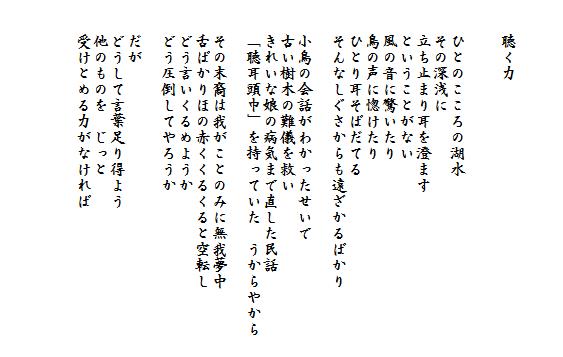 聴く力
ひとのこころの湖水
その深浅に
立ち止まり耳を澄ます
ということがない
風の音に驚いたり
鳥の声に惚けたり
ひとり耳そばだてる
そんなしぐさからも遠ざかるばかり
小鳥の会話がわかったせいで
古い樹木の難儀を救い
きれいな娘の病気まで直した民話
「聴耳頭巾」を持っていた　うからやから
その末裔は我がことのみに無我夢中
舌ばかりほの赤くくるくると空転し
どう言いくるめようか
どう圧倒してやろうか
だが
どうして言葉足り得よう
他のものを　じっと
受けとめる力がなければ